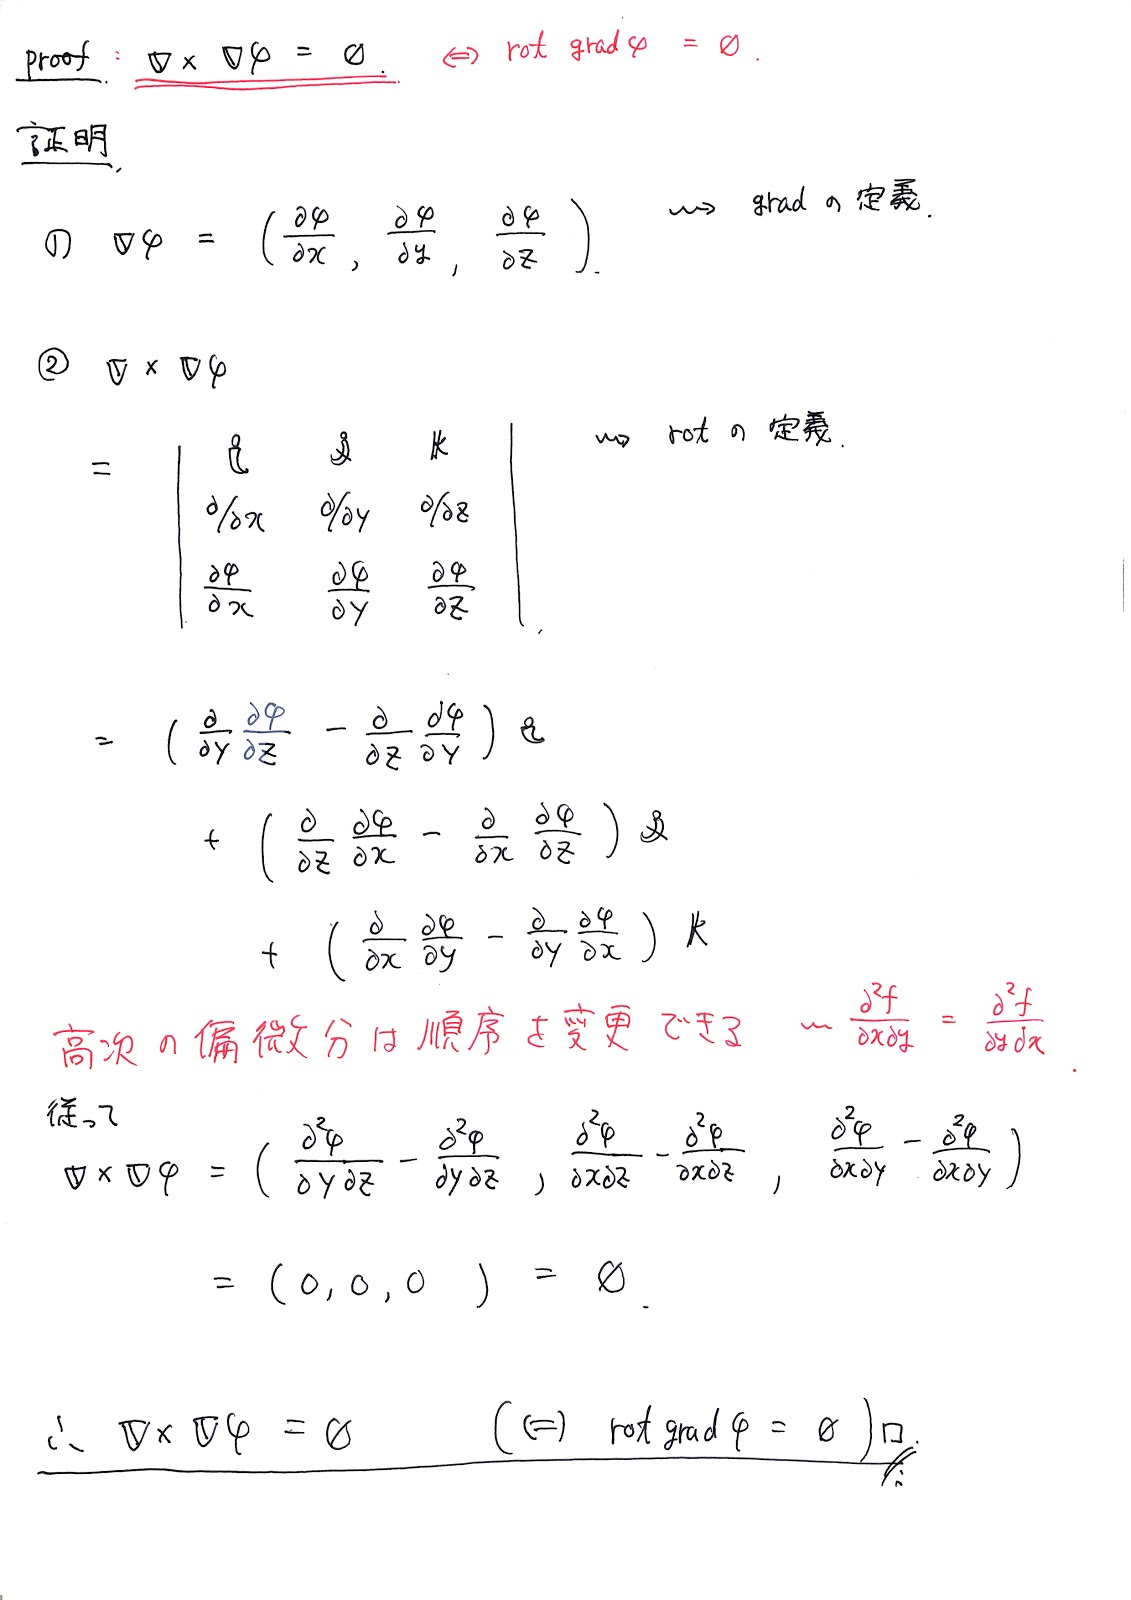 proof : ∇ × ∇φ = 0. ⇔ rot grad φ = 0.
証明.
① ∇φ = (∂φ/∂x, ∂φ/∂y, ∂φ/∂z). ⇝ gradの定義.
② ∇ × ∇φ
= | i j k | ⇝ rotの定義.
| ∂/∂x ∂/∂y ∂/∂z |
| ∂φ/∂x ∂φ/∂y ∂φ/∂z |.
= (∂/∂y ∂φ/∂z − ∂/∂z ∂φ/∂y) i
+ (∂/∂z ∂φ/∂x − ∂/∂x ∂φ/∂z) j
+ (∂/∂x ∂φ/∂y − ∂/∂y ∂φ/∂x) k
高次の偏微分は順序を変更できる 〜 ∂²f/∂x∂y = ∂²f/∂y∂x.
従って
∇ × ∇φ = (∂²φ/∂y∂z − ∂²φ/∂y∂z, ∂²φ/∂x∂z − ∂²φ/∂x∂z, ∂²φ/∂x∂y − ∂²φ/∂x∂y)
= (0, 0, 0) = 0.
∴ ∇ × ∇φ = 0 (⇔ rot grad φ = 0) □.